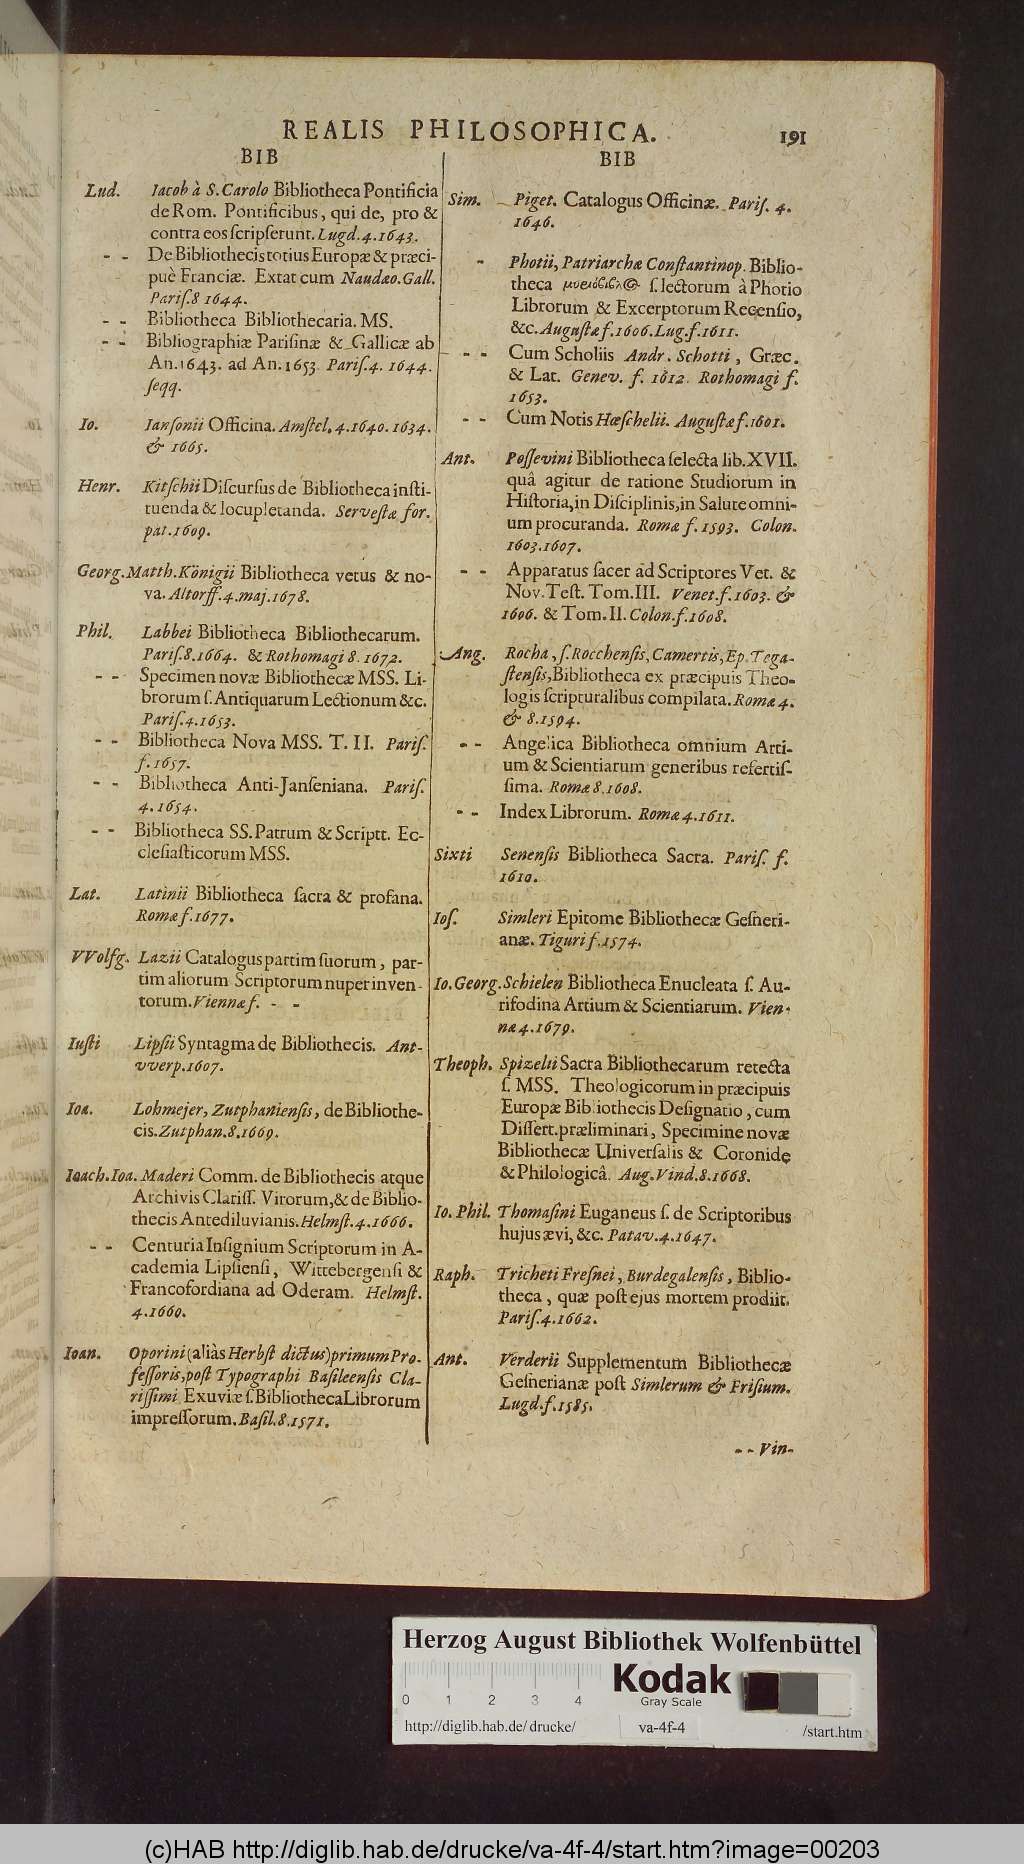 REALIS PHILOSOPHICA. 191
BIB
Lud. Iacob à S. Carolo Bibliotheca Pontificia
de Rom. Pontificibus, qui de, pro &
contra eos ſcripſerunt. Lugd. 4. 1643.
- - De Bibliothecis totius Europæ & præci-
puè Franciæ. Extat cum Naudæo. Gall.
Pariſ. 8 1644.
- - Bibliotheca Bibliothecaria. MS.
- - Bibliographiæ Pariſinæ & Gallicæ ab
An. 1643. ad An. 1653. Pariſ. 4. 1644.
ſeqq.
Io. Ianſonii Officina. Amſtel. 4. 1640. 1634.
& 1665.
Henr. Kitſchii Diſcurſus de Bibliotheca inſti-
tuenda & locupletanda. Serveſtæ for.
pat. 1609.
Georg. Matth. Königii Bibliotheca vetus & no-
va. Altorff. 4. maj. 1678.
Phil. Labbei Bibliotheca Bibliothecarum.
Pariſ. 8. 1664. & Rothomagi 8. 1672.
- - Specimen novæ Bibliothecæ MSS. Li-
brorum ſ. Antiquarum Lectionum &c.
Pariſ. 4. 1653.
- - Bibliotheca Nova MSS. T. II. Pariſ.
f. 1657.
- - Bibliotheca Anti-Janſeniana. Pariſ.
4. 1654.
- - Bibliotheca SS. Patrum & Scriptt. Ec-
cleſiaſticorum MSS.
Lat. Latinii Bibliotheca ſacra & profana.
Romæ f. 1677.
VVolfg. Lazii Catalogus partim ſuorum, par-
tim aliorum Scriptorum nuper inven-
torum. Viennæ f. - -
Iuſti Lipſii Syntagma de Bibliothecis. Ant-
vverp. 1607.
Ioa. Lohmejer, Zutphanienſis, de Bibliothe-
cis. Zutphan. 8. 1669.
Ioach. Ioa. Maderi Comm. de Bibliothecis atque
Archivis Clariſſ. Virorum, & de Biblio-
thecis Antediluvianis. Helmſt. 4. 1666.
- - Centuria Inſignium Scriptorum in A-
cademia Lipſienſi, Wittebergenſi &
Francofordiana ad Oderam. Helmſt.
4. 1660.
Ioan. Oporini (aliàs Herbſt dictus) primum Pro-
feſſoris, poſt Typographi Baſileenſis Cla-
riſſimi Exuviæ ſ. Bibliotheca Librorum
impreſſorum. Baſil. 8. 1571.
BIB
Sim. Piget. Catalogus Officinæ. Pariſ. 4.
1646.
- Photii, Patriarchæ Conſtantinop. Biblio-
theca ſ. lectorum à Photio
Librorum & Excerptorum Recenſio,
&c. Auguſtæ f. 1606. Lug. f. 1611.
- - Cum Scholiis Andr. Schotti, Græc.
& Lat. Genev. f. 1612. Rothomagi f.
1653.
- - Cum Notis Hæſchelii. Auguſtæ f. 1601.
Ant. Poſſevini Bibliotheca ſelecta lib. XVII.
quâ agitur de ratione Studiorum in
Hiſtoria, in Diſciplinis, in Salute omni-
um procuranda. Romæ f. 1593. Colon.
1603. 1607.
- - Apparatus ſacer ad Scriptores Vet. &
Nov. Teſt. Tom. III. Venet. f. 1603. &
1606. & Tom. II. Colon. f. 1608.
Ang. Rocha, ſ. Rocchenſis, Camertis, Ep. Tega-
ſtenſis, Bibliotheca ex præcipuis Theo-
logis ſcripturalibus compilata. Romæ 4.
& 8. 1594.
- - Angelica Bibliotheca omnium Arti-
um & Scientiarum generibus refertiſ-
ſima. Romæ 8. 1608.
- - Index Librorum. Romæ 4. 1611.
Sixti Senenſis Bibliotheca Sacra. Pariſ. f.
1610.
Ioſ. Simleri Epitome Bibliothecæ Geſneri-
anæ. Tiguri f. 1574.
Io. Georg. Schielen Bibliotheca Enucleata ſ. Au-
rifodina Artium & Scientiarum. Vien-
næ 4. 1679.
Theoph. Spizelii Sacra Bibliothecarum retecta
ſ. MSS. Theologicorum in præcipuis
Europæ Bibliothecis Deſignatio, cum
Diſſert. præliminari, Specimine novæ
Bibliothecæ Univerſalis & Coronide
& Philologicâ. Aug. Vind. 8. 1668.
Io. Phil. Thomaſini Euganeus ſ. de Scriptoribus
hujus ævi, &c. Patav. 4. 1647.
Raph. Tricheti Freſnei, Burdegalenſis, Biblio-
theca, quæ poſt ejus mortem prodiit.
Pariſ. 4. 1662.
Ant. Verderii Supplementum Bibliothecæ
Geſnerianæ poſt Simlerum & Friſium.
Lugd. f. 1585.
- - Vin-
Herzog August Bibliothek Wolfenbüttel
0 1 2 3 4
Kodak
Gray Scale
http://diglib.hab.de/drucke/ va-4f-4 /start.htm
(c)HAB http://diglib.hab.de/drucke/va-4f-4/start.htm?image=00203